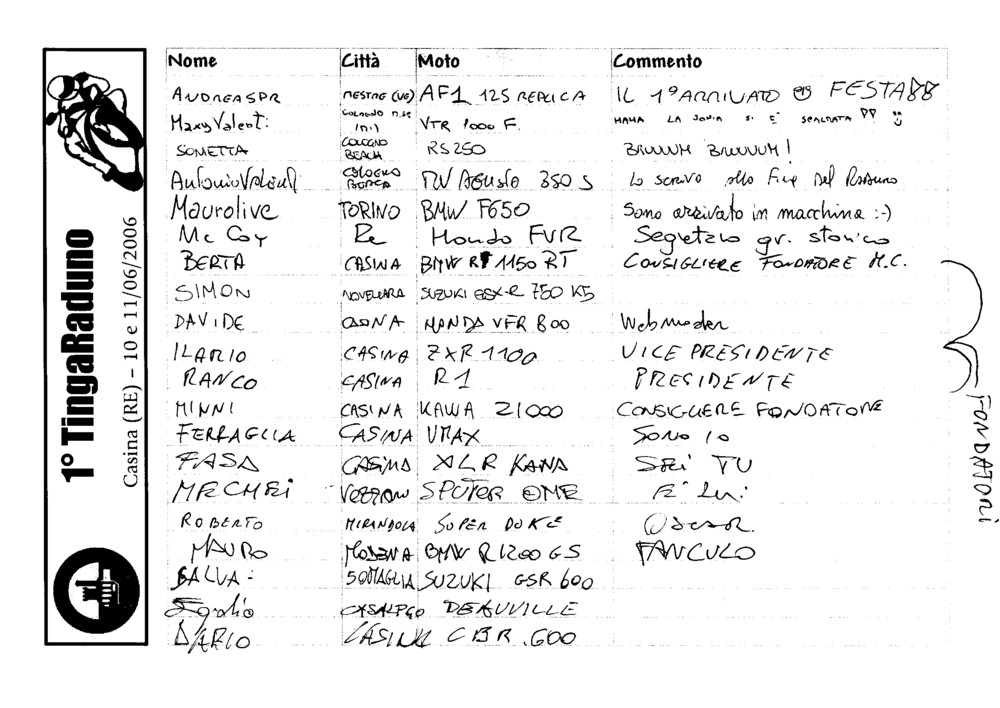 1° TingaRaduno
Casina (RE) – 10 e 11/06/2006
Nome Città Moto Commento
ANDREASPR MESTRE (VE) AF1 125 REPLICA IL 1° ARRIVATO FESTA
MaxyValenti COLOGNO (MI) VTR 1000 F. MAMA LA SONIA SI È
SOMETTA COLOGNO BEACH RS250 BRUUUM BRUUUM!
AntonioValenti COLOGNO BEACH MV AGUSTA 350 S Lo scrivo alla Fine Del Raduno
Maurolive TORINO BMW F650 Sono arrivato in macchina :-)
Mc Coy Re Honda FVR Segretario gr. storico
BERTA CASINA BMW R 1150 RT CONSIGLIERE FONDATORE M.C.
SIMON NOVELLARA SUZUKI GSX-R 750 K5
DAVIDE CASINA HONDA VFR 800 Webmaster
ILARIO CASINA ZXR 1100 VICE PRESIDENTE
RANCO CASINA R1 PRESIDENTE
MINNI CASINA KAWA Z1000 CONSIGLIERE FONDATORE
FERRAGLIA CASINA VMAX SONO IO
FASA CASINA XLR KAWA SEI TU
MECHEI VEZZANO SPUTER ONE E' lui
ROBERTO MIRANDOLA SUPER DUKE Oscar.
MAURO MODENA BMW R1200 GS FANCULO
SALVA SOMAGLIA SUZUKI GSR 600
CASALPGO DEAUVILLE
DARIO CASINA CBR 600
FONDATORI